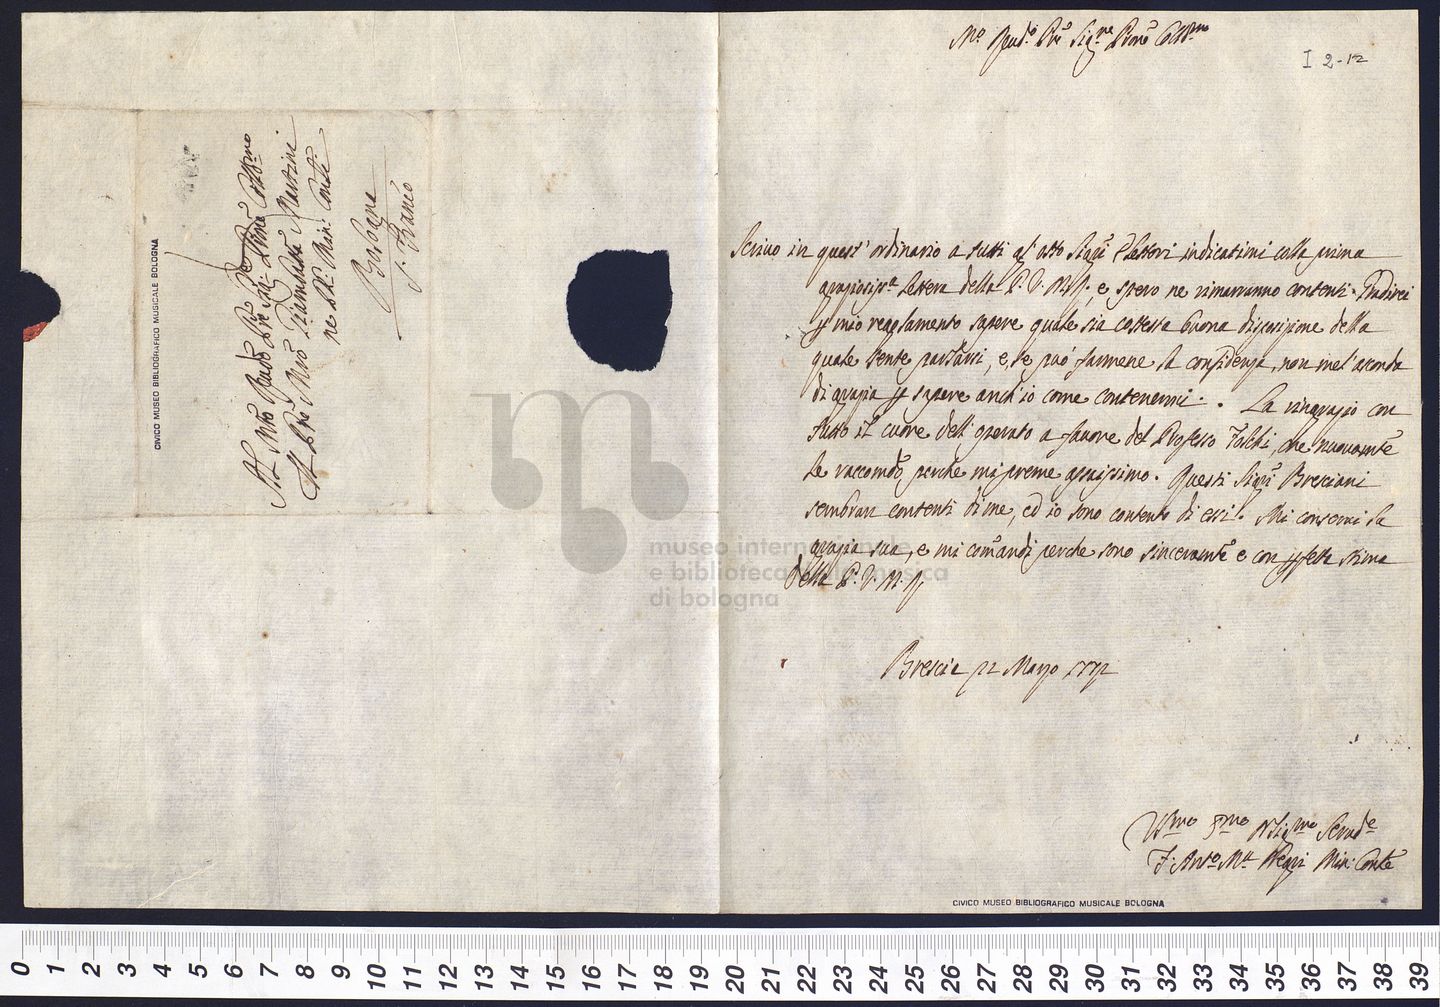 Al Mto Rndo Pre Sig: Pne Collmo
Il Pre Mro Giambatta Martini
ne PP: Min: Conti
Bologna
S. Franco
CIVICO MUSEO BIBLIOGRAFICO MUSICALE BOLOGNA
Mo Rendo Pre Sigre Prone Collmo
I 2-12
Scrivo in quest' ordinario a tutti gl' otto Sigri Elettori indicatimi colla prima
graziosissa Lettera della P. V. M. R., e spero ne rimarranno contenti.
mio regolamento sapere quale sia cottesta buona discrizione della
quale sente parlarsi, e, se può farmene la confidenza, non me l'asconda
di grazia p sapere anch'io come contenermi. La ringrazio con
tutto il cuore dell' operato a favore del Professo Falchi, che nuovamte
Le raccomdo perche mi preme assaissimo. Questi Sigri Bresciani
sembran contenti di me, ed io sono contento di essi. Mi conservi la
grazia sua, e mi comandi perche sono sinceramte e con pfetta stima
della P. V. M. R.
Brescia 12 Marzo 1772
Umo Dmo Obligmo Servde
F. Anto Ma Negri Min: Conte
CIVICO MUSEO BIBLIOGRAFICO MUSICALE BOLOGNA
museo internazionale
e biblioteca della musica
di bologna
0 1 2 3 4 5 6 7 8 9 10 11 12 13 14 15 16 17 18 19 20 21 22 23 24 25 26 27 28 29 30 31 32 33 34 35 36 37 38 39